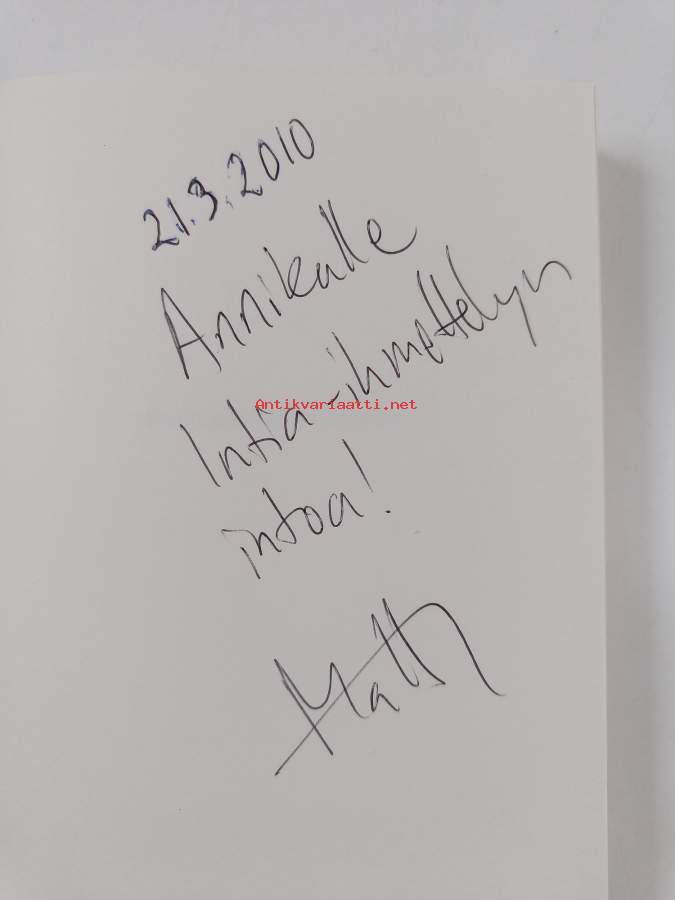 21.3.2010
Annikalle
Intia-ihmettelyn
Antikvariaatti.net
intoa!
Matti